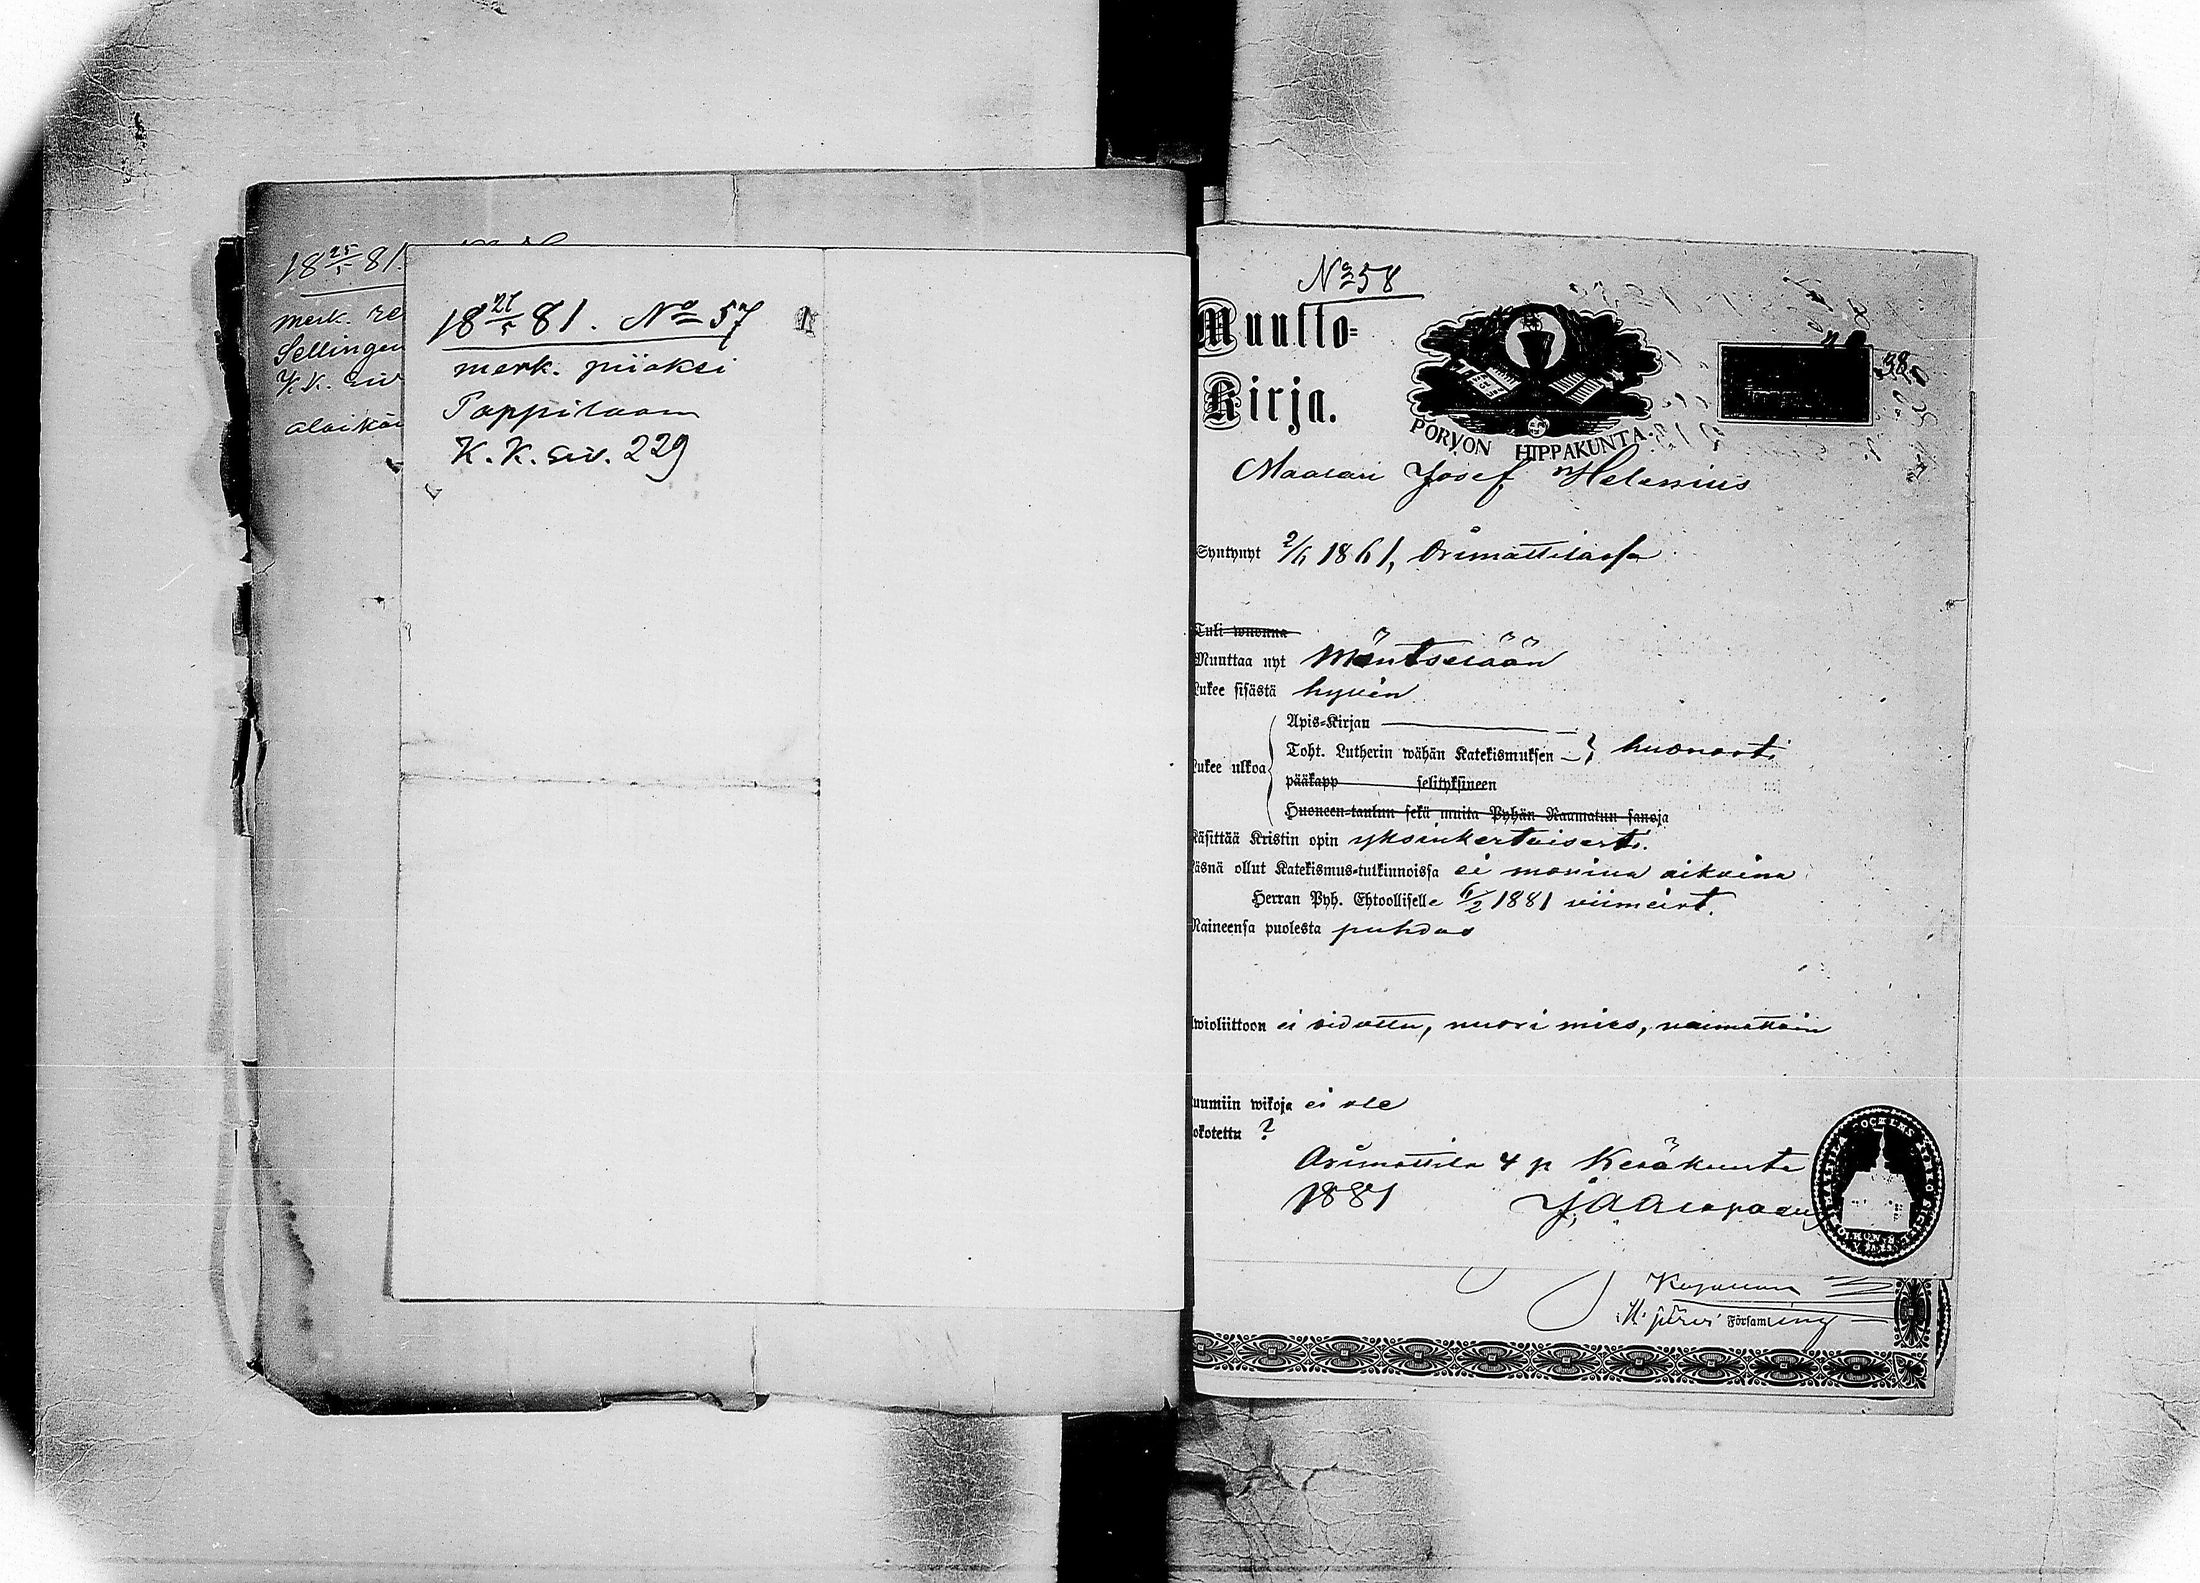 18 25/5 81.
merk. re
Sellingen
K.K. siv
alaikäi
18 27/5 81. No 57
merk. piiaksi
Pappilaan
K. K. siv. 229
No 58
Muutto-
Kirja.
PORVON HIPPAKUNTA.
Maalari Josef Helenius
Syntynyt 2/6 1861, Orimattilassa
Tuli wuonna
Muuttaa nyt Mäntselään
Lukee sisästä hyvin
Apis-Kirjan
Toht. Lutherin wähän Katekismuksen
huonosti
Lukee ulkoa
pääkapp selityksineen
Huoneen-taulun sekä muita Pyhän Raamatun sanoja
Käsittää Kristin opin yksinkertaisesti.
Läsnä ollut Katekismus-tutkinnoissa ei monina aikoina
Herran Pyh. Ehtoollisella 6/2 1881 viimeist.
Maineensa puolesta puhdas
wioliittoon ei sidottu, nuori mies, naimatoin
uumiin wikoja ei ole
okotettu ?
Orimattila 4 p Kesäkuuta
1881
Församling